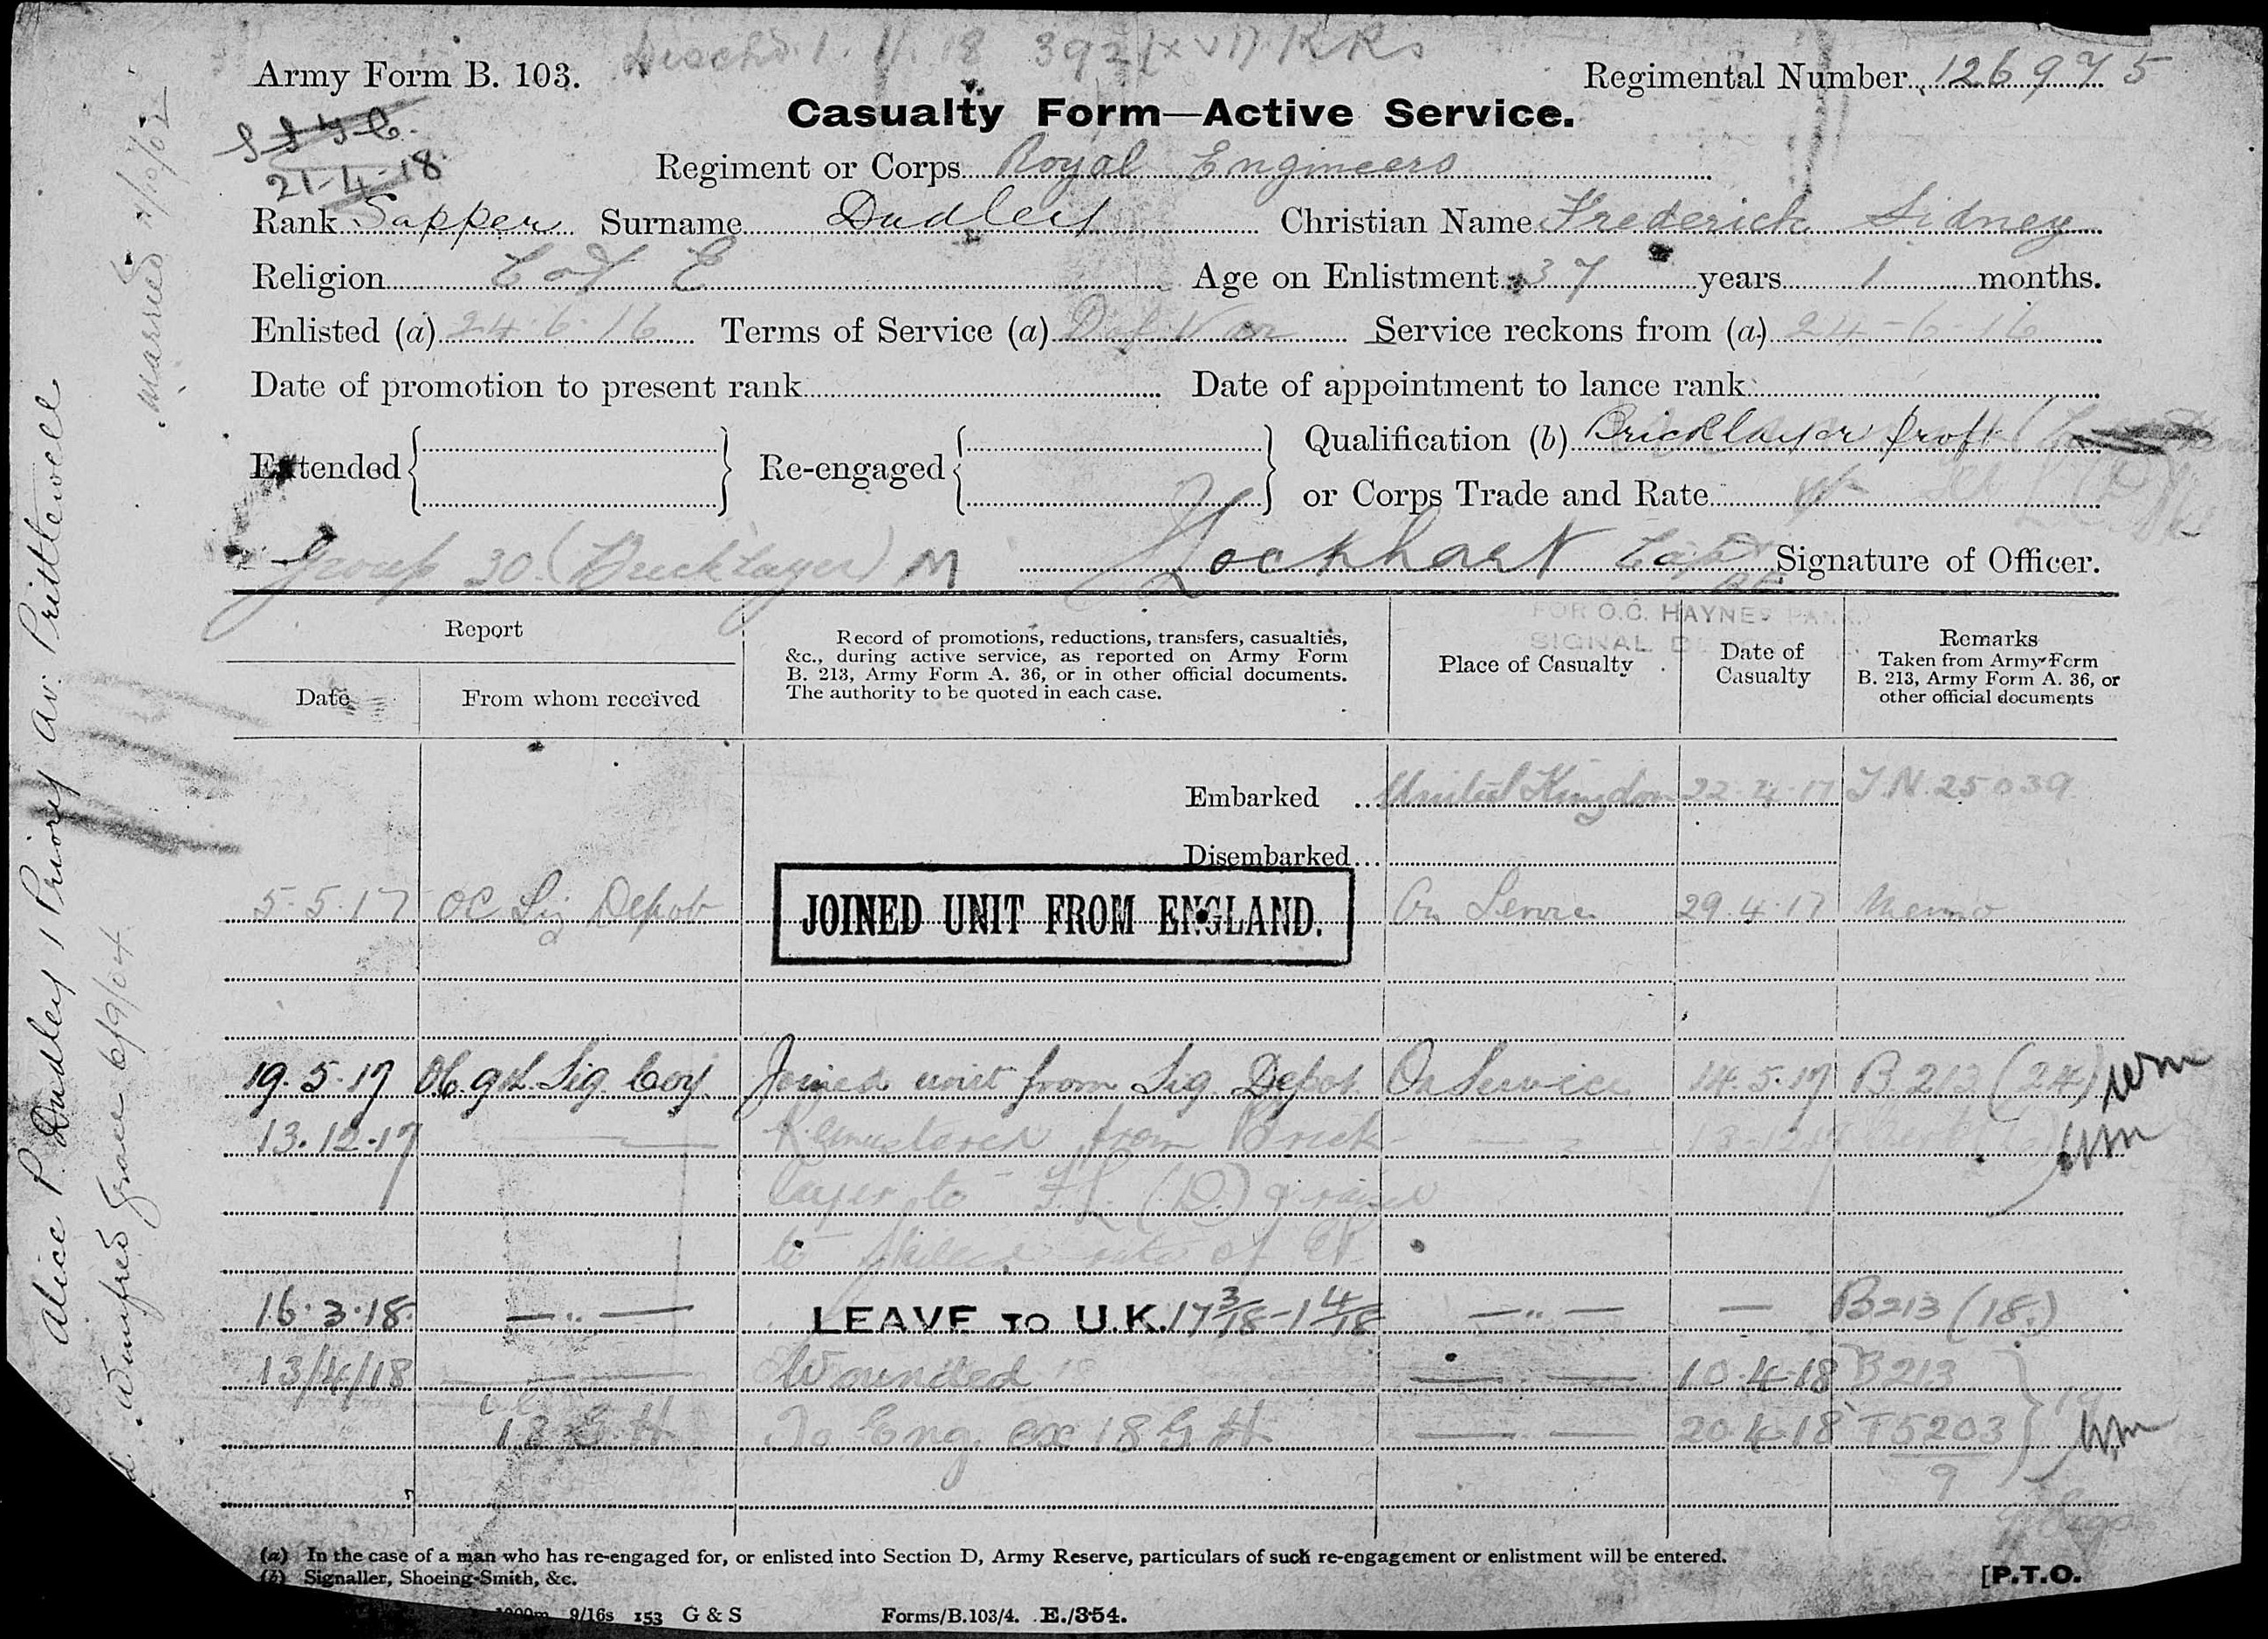 Dischd. 1. 11. 18 392 (XVI) KRs
Army Form B. 103.
Regimental Number 126975
Casualty Form—Active Service.
21-4-18
Regiment or Corps Royal Engineers
Rank Sapper Surname Dudley Christian Name Frederick Sidney
Religion C of E Age on Enlistment 37 years 1 months.
Enlisted (a) 24.6.16 Terms of Service (a) D of War Service reckons from (a) 24-6-16
Date of promotion to present rank Date of appointment to lance rank
Extended Re-engaged Qualification (b) Bricklayer Proft
or Corps Trade and Rate
Group 30 (Bricklayer) M Lockhart Capt RE Signature of Officer.
FOR O.C. HAYNES PARK
SIGNAL
Report
Date From whom received
Record of promotions, reductions, transfers, casualties,
&c., during active service, as reported on Army Form
B. 213, Army Form A. 36, or in other official documents.
The authority to be quoted in each case.
Place of Casualty
Date of
Casualty
Remarks
Taken from Army Form
B. 213, Army Form A. 36, or
other official documents
Embarked United Kingdom 22.4.17 J.N. 25039
Disembarked
5.5.17 OC Sig Depot JOINED UNIT FROM ENGLAND. On Service 29.4.17 Memo
19.5.17 OC. 9th. Sig. Coy. Joined unit from Sig. Depot. On Service 14.5.17 B 213 (24) wm
13.12.17 Remustered from Brick- wm
layer to F.L. (D.)
to rate of
16.3.18. — " — LEAVE TO U.K. 17 3/18 - 1 4/18 — " — — B213 (18.)
13/4/18 Wounded 10.4.18 B213
18 G.H To Eng. ex 18 G H 20.4.18 T5203 wm
9
(a) In the case of a man who has re-engaged for, or enlisted into Section D, Army Reserve, particulars of such re-engagement or enlistment will be entered.
(b) Signaller, Shoeing-Smith, &c.
[P.T.O.
9/16s 153 G & S Forms/B.103/4. E./354.
Alice P. Dudley 1 Priory Av. Prittlewell
Married
Winifred Grace 6/9/04